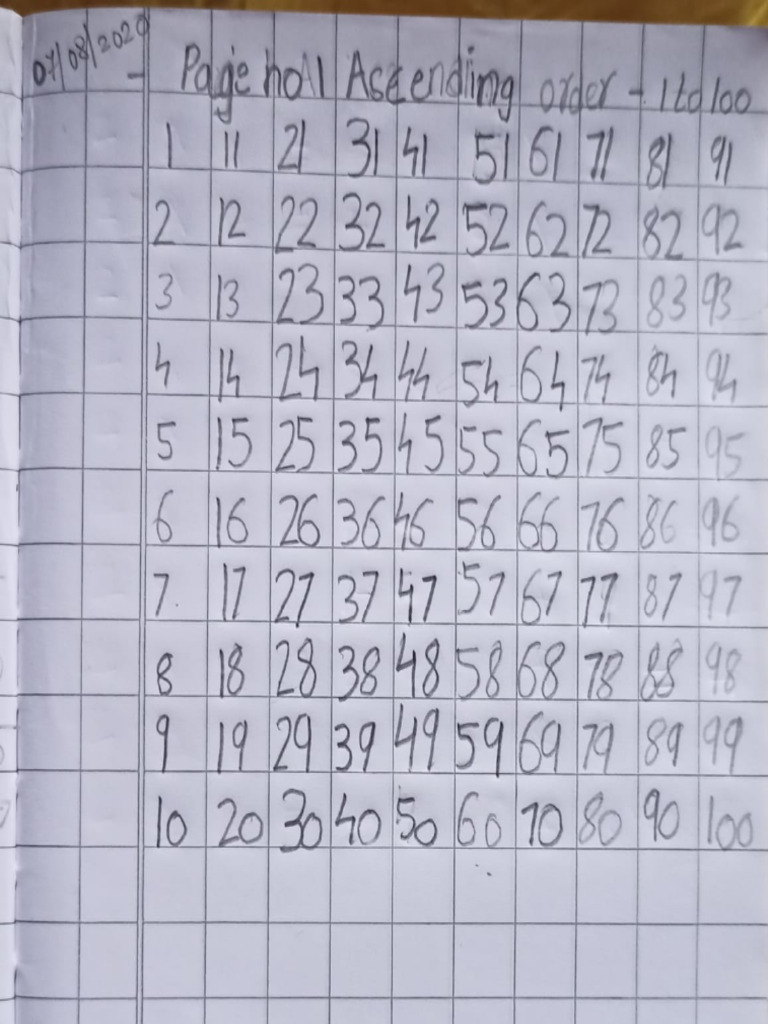 07/08/2020
Page no 1 Ascending order - 1 to 100
1 11 21 31 41 51 61 71 81 91
2 12 22 32 42 52 62 72 82 92
3 13 23 33 43 53 63 73 83 93
4 14 24 34 44 54 64 74 84 94
5 15 25 35 45 55 65 75 85 95
6 16 26 36 46 56 66 76 86 96
7 17 27 37 47 57 67 77 87 97
8 18 28 38 48 58 68 78 88 98
9 19 29 39 49 59 69 79 89 99
10 20 30 40 50 60 70 80 90 100